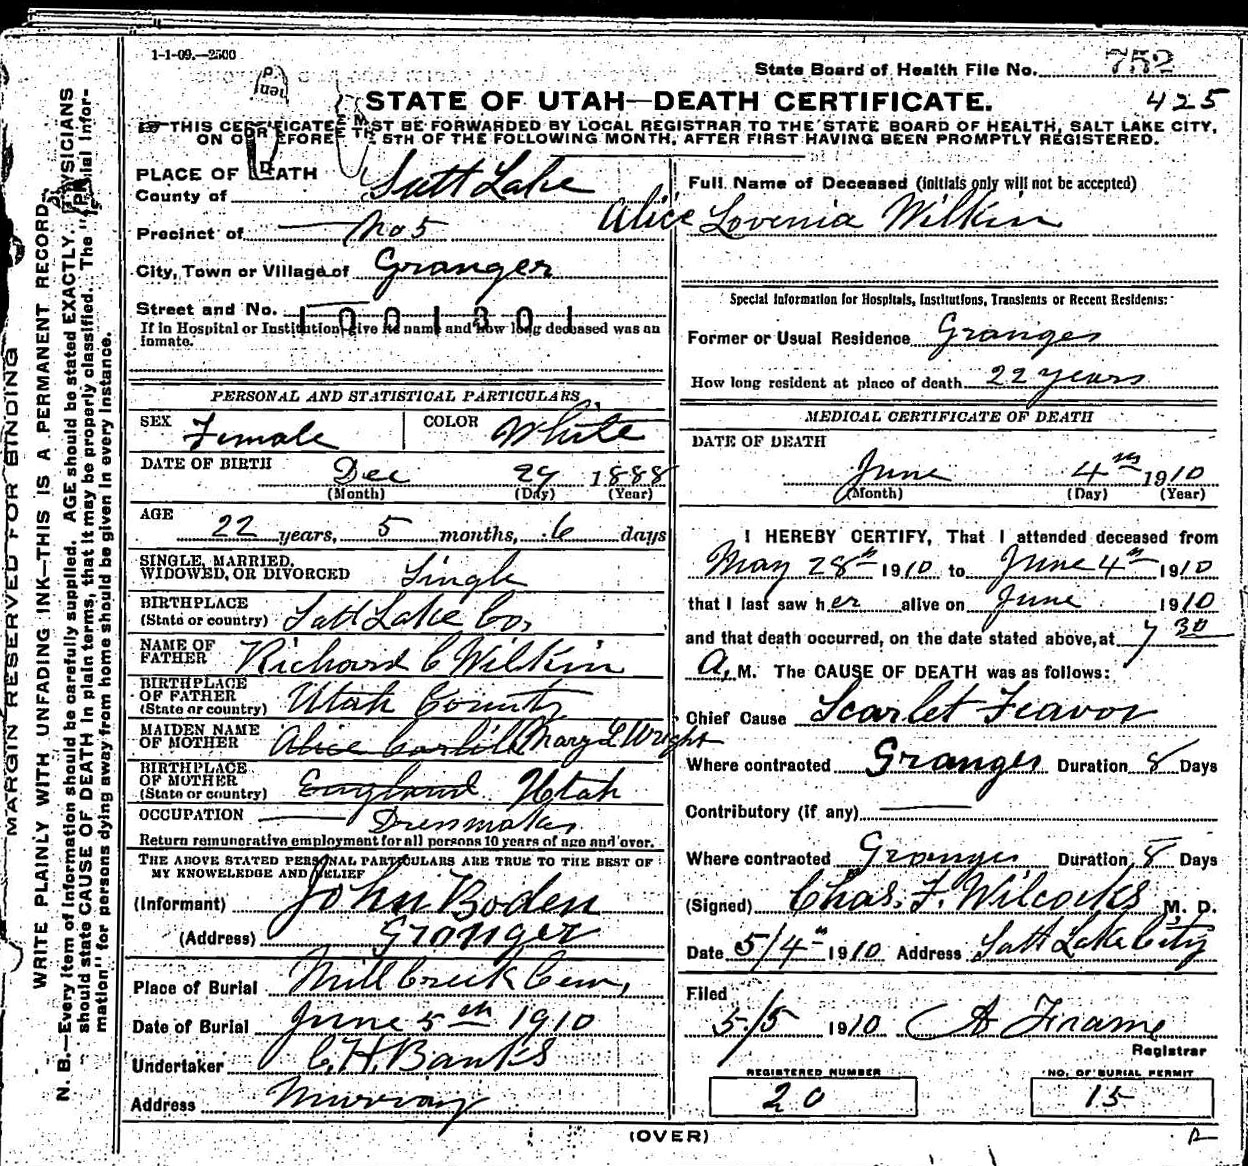 1-1-09.—2500
State Board of Health File No. 752
STATE OF UTAH—DEATH CERTIFICATE.
425
THIS CERTIFICATE MUST BE FORWARDED BY LOCAL REGISTRAR TO THE STATE BOARD OF HEALTH, SALT LAKE CITY,
ON OR BEFORE THE 5TH OF THE FOLLOWING MONTH, AFTER FIRST HAVING BEEN PROMPTLY REGISTERED.
MARGIN RESERVED FOR BINDING
WRITE PLAINLY WITH UNFADING INK—THIS IS A PERMANENT RECORD.
N. B.—Every item of information should be carefully supplied. AGE should be stated EXACTLY. PHYSICIANS
should state CAUSE OF DEATH in plain terms, that it may be properly classified. The "Special Infor-
mation" for persons dying away from home should be given in every instance.
PLACE OF DEATH
County of Salt Lake
Precinct of No 5
City, Town or Village of Granger
Street and No.
1001301
If in Hospital or Institution, give its name and how long deceased was an
inmate.
PERSONAL AND STATISTICAL PARTICULARS
SEX Female COLOR White
DATE OF BIRTH Dec 29 1888
(Month) (Day) (Year)
AGE 22 years, 5 months, 6 days
SINGLE, MARRIED,
WIDOWED, OR DIVORCED Single
BIRTHPLACE
(State or country) Salt Lake Co,
NAME OF
FATHER Richard C Wilkin
BIRTHPLACE
OF FATHER
(State or country) Utah County
MAIDEN NAME
OF MOTHER Alice Mary L Wright
BIRTHPLACE
OF MOTHER
(State or country) England Utah
OCCUPATION Dressmaker
Return remunerative employment for all persons 10 years of age and over.
THE ABOVE STATED PERSONAL PARTICULARS ARE TRUE TO THE BEST OF
MY KNOWELEDGE AND BELIEF
(Informant) John Boden
(Address) Granger
Place of Burial Mill Creek Cem,
Date of Burial June 5th 1910
Undertaker C.H. Banks
Address Murray
Full Name of Deceased (initials only will not be accepted)
Alice Lovenia Wilkin
Special Information for Hospitals, Institutions, Transients or Recent Residents:
Former or Usual Residence Granger
How long resident at place of death 22 years
MEDICAL CERTIFICATE OF DEATH
DATE OF DEATH
June 4th 1910
(Month) (Day) (Year)
I HEREBY CERTIFY, That I attended deceased from
May 28th 1910 to June 4th 1910
that I last saw her alive on June 1910
and that death occurred, on the date stated above, at 7 30
A. M. The CAUSE OF DEATH was as follows:
Chief Cause Scarlet Feavor
Where contracted Granger Duration 8 Days
Contributory (if any)
Where contracted Granger Duration 8 Days
(Signed) Chas. F. Wilcocks M. D.
Date 5/4th 1910 Address Salt Lake City
Filed
5/5 1910 A Frame
Registrar
REGISTERED NUMBER
20
NO. OF BURIAL PERMIT
15
(OVER)